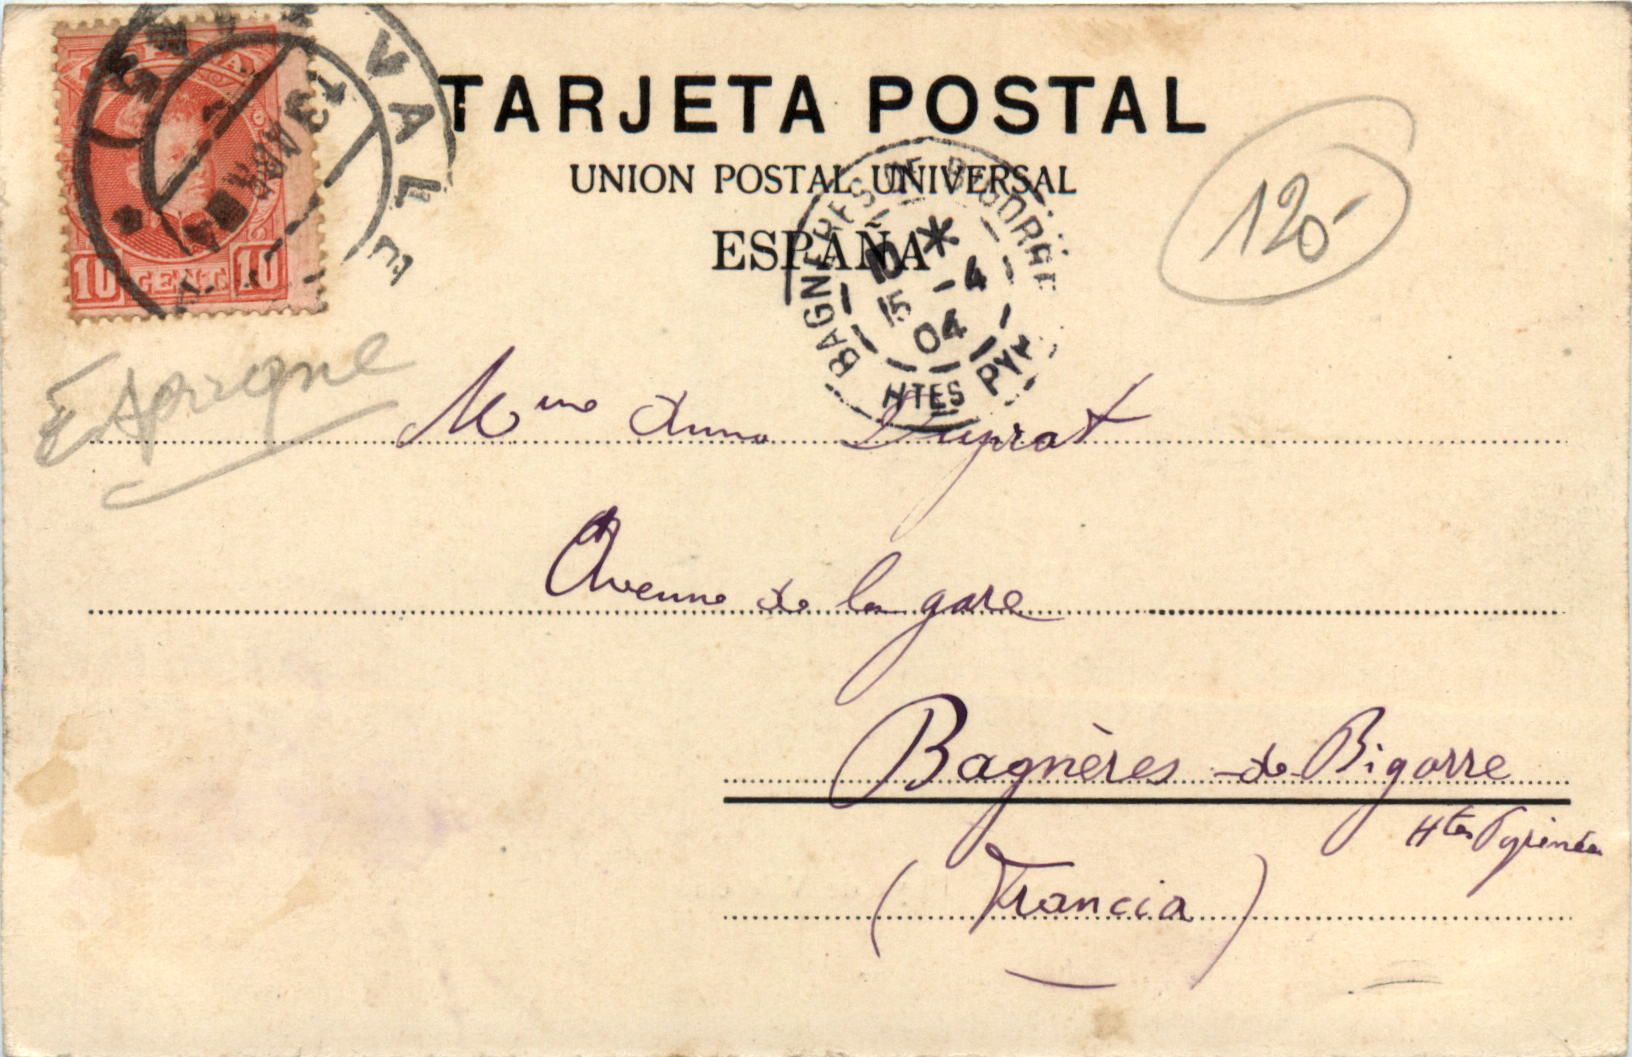 TARJETA POSTAL
UNION POSTAL UNIVERSAL
ESPAÑA
10 CENT. 10
VALLE
13 ABR
BAGNERES DE BIGORRE
10 *
5 -4
04
HTES PYR
120-
Espagne
Mme Anna Duprat
Avenue de la gare
Bagnères-de-Bigorre
Htes Pyrénées
(Francia)